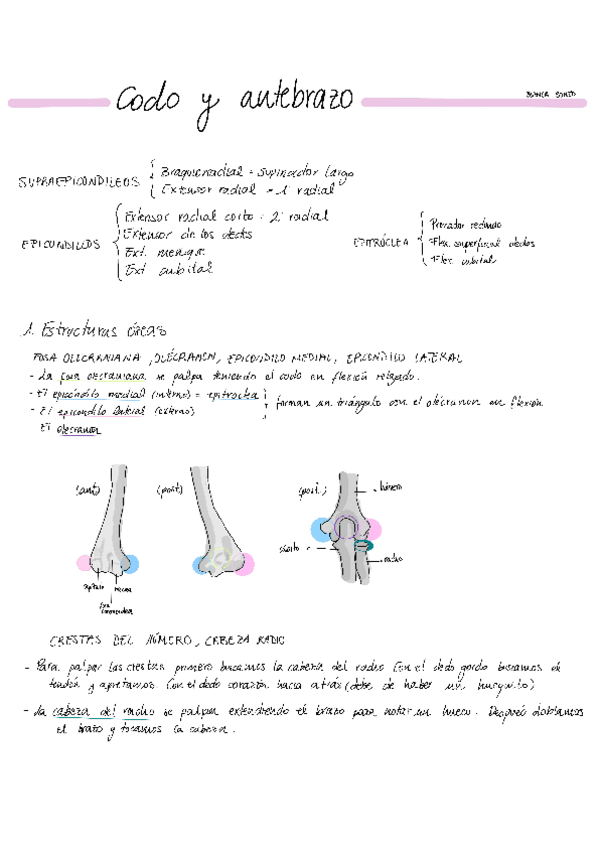 Codo y antebrazo
SUPRAEPICONDILEOS
Braquiorradial = Supinador largo
Extensor radial = 1º radial
EPICONDILEOS
Extensor radial corto = 2º radial
Extensor de los dedos
Ext. meñique
Ext. cubital
EPITRÓCLEA
Pronador redondo
Flex. superficial dedos
Flex. cubital
1. Estructuras óseas
FOSA OLECRANIANA, OLÉCRANON, EPICÓNDILO MEDIAL, EPICÓNDILO LATERAL
- La fosa olecraniana se palpa teniendo el codo en flexión relajado.
- El epicóndilo medial (interno) = epitróclea
- El epicóndilo lateral (externo)
El olecranon
forman un triángulo con el olécranon en flexión
(ant)
(post)
(post.)
húmero
radio
capítulo
tróclea
fosa
coronoidea
CRESTAS DEL HÚMERO, CABEZA RADIO
- Para palpar las crestas primero buscamos la cabeza del radio. Con el dedo gordo buscamos el
tendón y apretamos. Con el dedo corazón hacia atrás (debe de haber un huequito)
- La cabeza del radio se palpa extendiendo el brazo para notar un hueco. Después doblamos
el brazo y tocamos la cabeza.